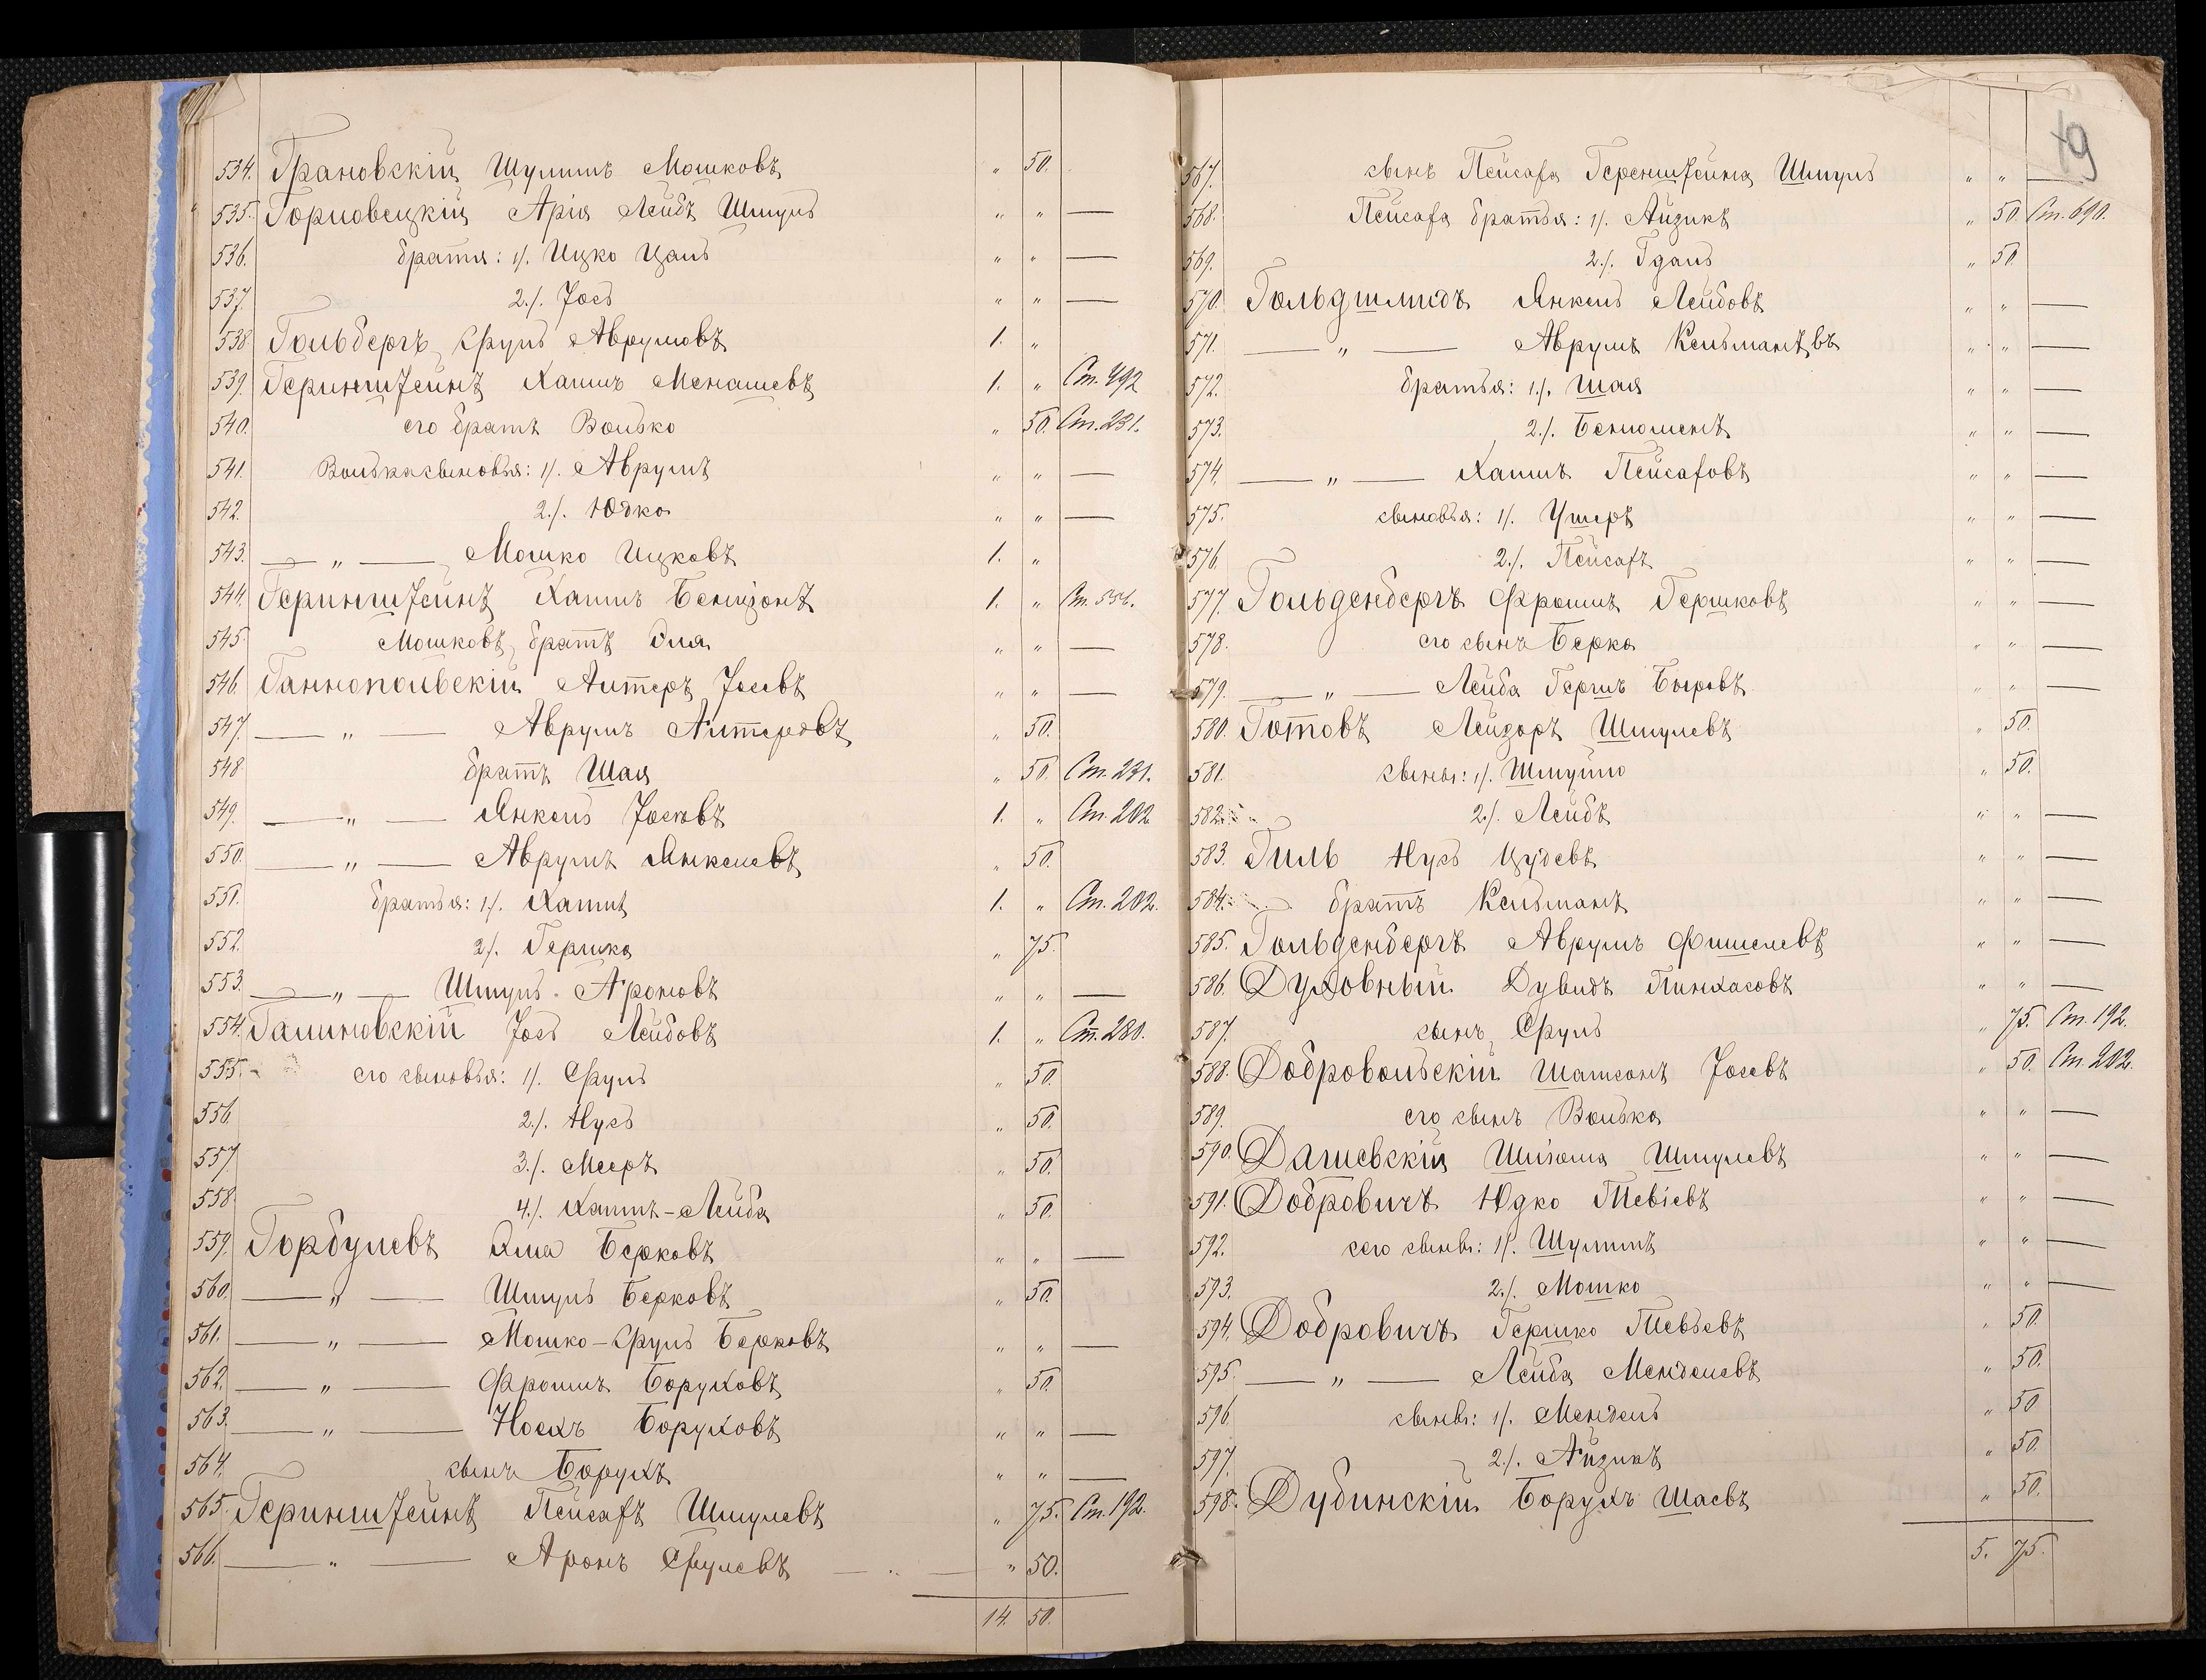 534. Грановскій Шулимъ Мошковъ „ 50.
535. Горновецкій Арія Лейбъ Шмуль „ „ —
536. братья: 1/. Ицко Цаль „ „ —
537. 2./. Іось „ „ —
538. Гольбергъ Сруль Аврумовъ 1. „
539. Геринштейнъ Хаимъ Менашевъ 1. „ Ст. 492
540. его братъ Волько „ 50. Ст. 231.
541. Волька сыновья: 1/. Аврумъ „ „ —
542. 2./. Юдко „ „ —
543. — „ — Мошко Ицковъ 1. „
544. Геринштейнъ Хаимъ Бенцionъ 1. „ Ст. 551.
545. Мошковъ, братъ Эля „ „ —
546. Ганнопольскій Алтеръ Іосевъ „ „ —
547. — „ — Аврумъ Алтеровъ „ 50.
548. братъ Шая „ 50. Ст. 231.
549. — „ — Янкель Іосьовъ 1. „ Ст. 202
550. — „ — Аврумъ Янкелевъ „ 50.
551. братья: 1/. Хаимъ 1. „ Ст. 202.
552. 2/. Гершко „ 75.
553. — „ — Шмуль Ароновъ „ „ —
554. Галиновскій Іось Лейбовъ 1. „ Ст. 280.
555. его сыновья: 1/. Сруль „ 50.
556. 2./. Нусь „ 50.
557. 3./. Мееръ „ 50.
558. 4./. Хаимъ-Лейба „ 50.
559. Горбулевъ Эля Берковъ „ „ —
560. — „ — Шмуль Берковъ „ 50.
561. — „ — Мошко-Сруль Берковъ „ „ —
562. — „ — Фроимъ Боруховъ „ 50.
563. — „ — Носхъ Боруховъ „ „ —
564. сынъ Борухъ „ „ —
565. Геринштейнъ Пейсахъ Шмулевъ „ 75. Ст. 192.
566. — „ — Аронъ Срулевъ — „ — „ 50.
14. 50.
19
567. сынъ Пейсаха Геренштейна Шмуль „ „ —
568. Пейсаха братья: 1/. Айзикъ „ 50. Ст. 690.
569. 2./. Гдаль „ 50.
570. Гольдшмидъ Янкель Лейбовъ „ „ —
571. — „ — Аврумъ Кельмановъ „ „ —
572. братья: 1./. Шая „ „ —
573. 2./. Беньоменъ „ „ —
574. — „ — Хаимъ Пейсаховъ „ „ —
575. сыновья: 1/. Ушеръ „ „ —
576. 2./. Пейсахъ „ „ —
577. Гольденбергъ Фроимъ Гершковъ „ „ —
578. его сынъ Берко „ „ —
579. — „ — Лейба Гершъ Быровъ „ „ —
580. Готовъ Лейзоръ Шмулевъ „ 50.
581. сыны: 1/. Шмуйло „ 50.
582. 2/. Лейбъ „ „ —
583. Гиль Нусь Цудевъ „ „ —
584. братъ Кельманъ „ „ —
585. Гольденбергъ Аврумъ Фишелевъ „ „ —
586. Духовный Дувидъ Пинхасовъ „ „ —
587. сынъ Сруль „ 75. Ст. 192.
588. Добровольскій Шамсонъ Іосевъ „ 50. Ст. 202.
589. его сынъ Волько „ „ —
590. Дашевскій Шліома Шмулевъ „ „ —
591. Добровичъ Юдко Тевіевъ „ „ —
592. его сыны: 1/. Шулимъ „ „ —
593. 2./. Мошко „ „ —
594. Добровичъ Гершко Тевьевъ „ 50.
595. — „ — Лейба Менделевъ „ 50.
596. сыны: 1/. Мендель „ 50
597. 2./. Айзикъ „ 50.
598. Дубинскій Борухъ Шаевъ „ 50.
5. 75.